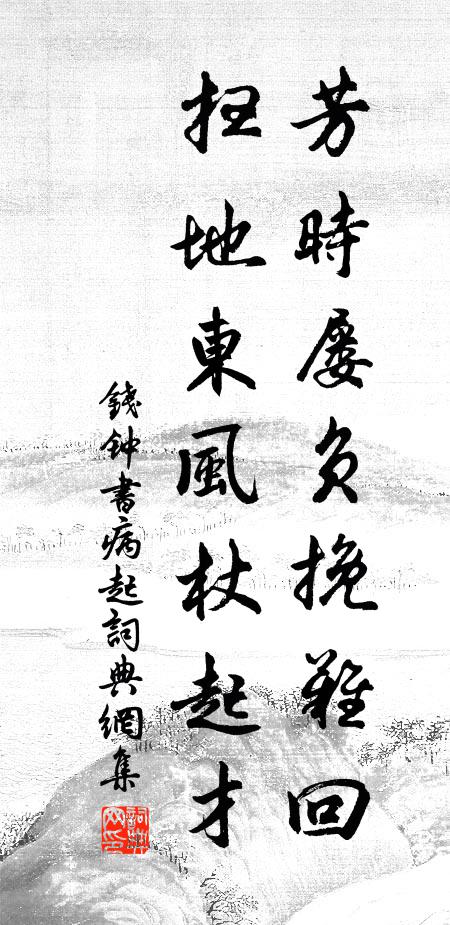 芳時屢負挽難回
扫地東風杖起才
錢钟書病起詞典網集
詞典网印